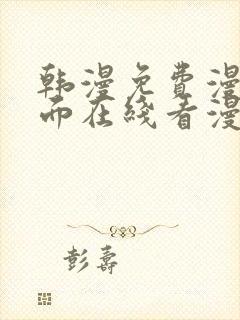 韩漫免费漫
而在线看漫
彭寿